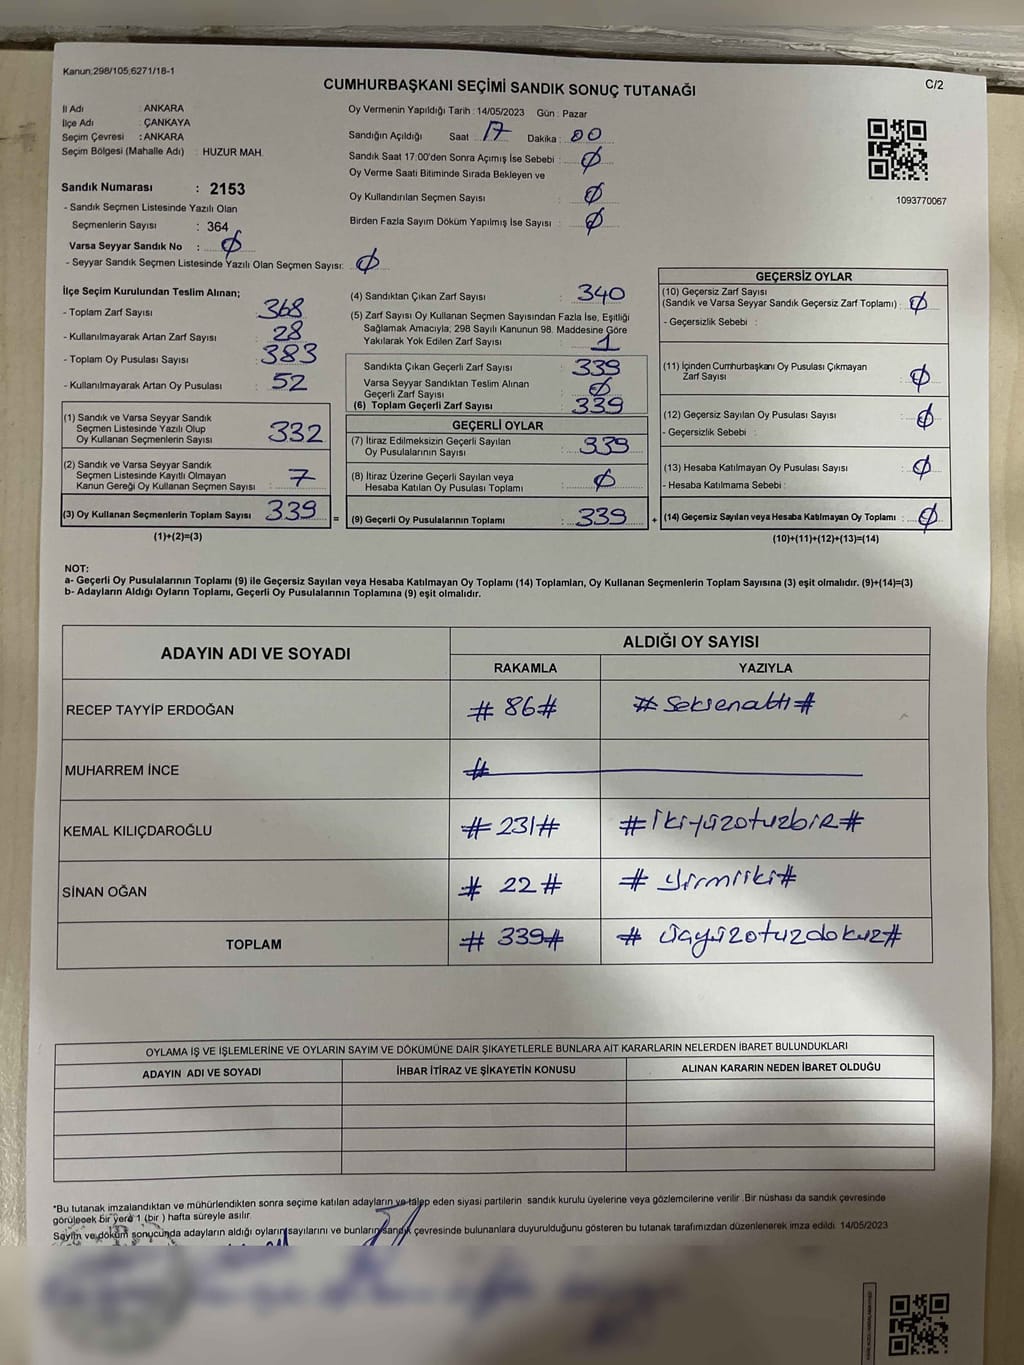 Kanun;298/105;6271/18-1
CUMHURBAŞKANI SEÇİMİ SANDIK SONUÇ TUTANAĞI
C/2
İl Adı : ANKARA
İlçe Adı : ÇANKAYA
Seçim Çevresi : ANKARA
Seçim Bölgesi (Mahalle Adı) : HUZUR MAH.
Sandık Numarası : 2153
- Sandık Seçmen Listesinde Yazılı Olan
Seçmenlerin Sayısı : 364
Varsa Seyyar Sandık No : Ø
- Seyyar Sandık Seçmen Listesinde Yazılı Olan Seçmen Sayısı: Ø
Oy Vermenin Yapıldığı Tarih : 14/05/2023 Gün : Pazar
Sandığın Açıldığı Saat 17 Dakika : 00
Sandık Saat 17:00'den Sonra Açımış İse Sebebi : Ø
Oy Verme Saati Bitiminde Sırada Bekleyen ve
Oy Kullandırılan Seçmen Sayısı : Ø
Birden Fazla Sayım Döküm Yapılmış İse Sayısı : Ø
1093770067
İlçe Seçim Kurulundan Teslim Alınan;
- Toplam Zarf Sayısı : 368
- Kullanılmayarak Artan Zarf Sayısı : 28
- Toplam Oy Pusulası Sayısı : 383
- Kullanılmayarak Artan Oy Pusulası : 52
(1) Sandık ve Varsa Seyyar Sandık
Seçmen Listesinde Yazılı Olup
Oy Kullanan Seçmenlerin Sayısı : 332
(2) Sandık ve Varsa Seyyar Sandık
Seçmen Listesinde Kayıtlı Olmayan
Kanun Gereği Oy Kullanan Seçmen Sayısı : 7
(3) Oy Kullanan Seçmenlerin Toplam Sayısı : 339
(1)+(2)=(3)
(4) Sandıktan Çıkan Zarf Sayısı : 340
(5) Zarf Sayısı Oy Kullanan Seçmen Sayısından Fazla İse, Eşitliği
Sağlamak Amacıyla; 298 Sayılı Kanunun 98. Maddesine Göre
Yakılarak Yok Edilen Zarf Sayısı : 1
Sandıkta Çıkan Geçerli Zarf Sayısı : 339
Varsa Seyyar Sandıktan Teslim Alınan
Geçerli Zarf Sayısı : Ø
(6) Toplam Geçerli Zarf Sayısı : 339
GEÇERLİ OYLAR
(7) İtiraz Edilmeksizin Geçerli Sayılan
Oy Pusulalarının Sayısı : 339
(8) İtiraz Üzerine Geçerli Sayılan veya
Hesaba Katılan Oy Pusulası Toplamı : Ø
= (9) Geçerli Oy Pusulalarının Toplamı : 339 +
GEÇERSİZ OYLAR
(10) Geçersiz Zarf Sayısı
(Sandık ve Varsa Seyyar Sandık Geçersiz Zarf Toplamı) : Ø
- Geçersizlik Sebebi :
(11) İçinden Cumhurbaşkanı Oy Pusulası Çıkmayan
Zarf Sayısı : Ø
(12) Geçersiz Sayılan Oy Pusulası Sayısı : Ø
- Geçersizlik Sebebi :
(13) Hesaba Katılmayan Oy Pusulası Sayısı : Ø
- Hesaba Katılmama Sebebi :
(14) Geçersiz Sayılan veya Hesaba Katılmayan Oy Toplamı : Ø
(10)+(11)+(12)+(13)=(14)
NOT:
a- Geçerli Oy Pusulalarının Toplamı (9) ile Geçersiz Sayılan veya Hesaba Katılmayan Oy Toplamı (14) Toplamları, Oy Kullanan Seçmenlerin Toplam Sayısına (3) eşit olmalıdır. (9)+(14)=(3)
b- Adayların Aldığı Oyların Toplamı, Geçerli Oy Pusulalarının Toplamına (9) eşit olmalıdır.
ADAYIN ADI VE SOYADI
ALDIĞI OY SAYISI
RAKAMLA YAZIYLA
RECEP TAYYİP ERDOĞAN # 86# # Seksenaltı #
MUHARREM İNCE #
KEMAL KILIÇDAROĞLU # 231# # ikiyüzotuzbiR #
SİNAN OĞAN # 22 # # yirmiiki #
TOPLAM # 339# # üçyüzotuzdokuz #
OYLAMA İŞ VE İŞLEMLERİNE VE OYLARIN SAYIM VE DÖKÜMÜNE DAİR ŞİKAYETLERLE BUNLARA AİT KARARLARIN NELERDEN İBARET BULUNDUKLARI
ADAYIN ADI VE SOYADI İHBAR İTİRAZ VE ŞİKAYETİN KONUSU ALINAN KARARIN NEDEN İBARET OLDUĞU
*Bu tutanak imzalandıktan ve mühürlendikten sonra seçime katılan adayların ve talep eden siyasi partilerin sandık kurulu üyelerine veya gözlemcilerine verilir .Bir nüshası da sandık çevresinde
görülecek bir yere 1 (bir ) hafta süreyle asılır.
Sayım ve döküm sonucunda adayların aldığı oyların sayılarını ve bunların sandık çevresinde bulunanlara duyurulduğunu gösteren bu tutanak tarafımızdan düzenlenerek imza edildi. 14/05/2023